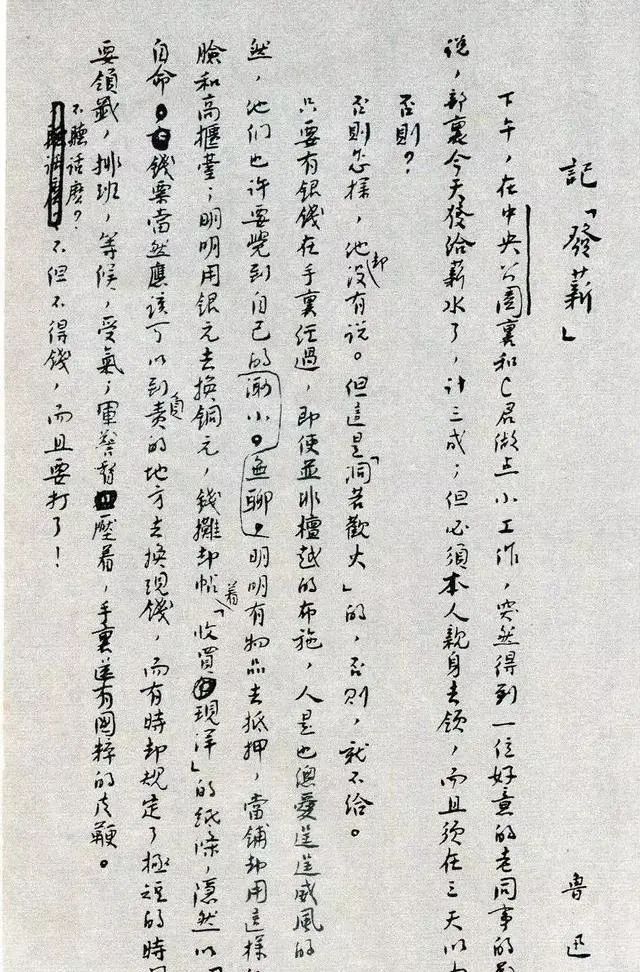 記「發薪」
魯迅
下午，在中央公園裏和C君做点小工作，突然得到一位好意的老同事的
说，部裏今天發给薪水了，计三成；但必须本人親身去领，而且须在三天以
否則？
否則怎樣，他却没有说。但這是「洞若歡火」的，否則，就不给。
只要有銀錢在手裏经過，即使並非檀越的布施，人是也總愛逞逞威風的
然，他们也许要覺到自己的渺小。無聊。明明有物品去抵押，當铺却用這樣
臉和高櫃臺；明明用銀元去换銅元，錢攤却帖着「收買現洋」的纸条，隱然以
自命。錢票當然應该可以到負责的地方去换現錢，而有時却规定了極短的時
要领籤，排班，等候，受氣；軍警督壓着，手裏還有國粹的皮鞭。
不聽話麽？不但不得錢，而且要打了！